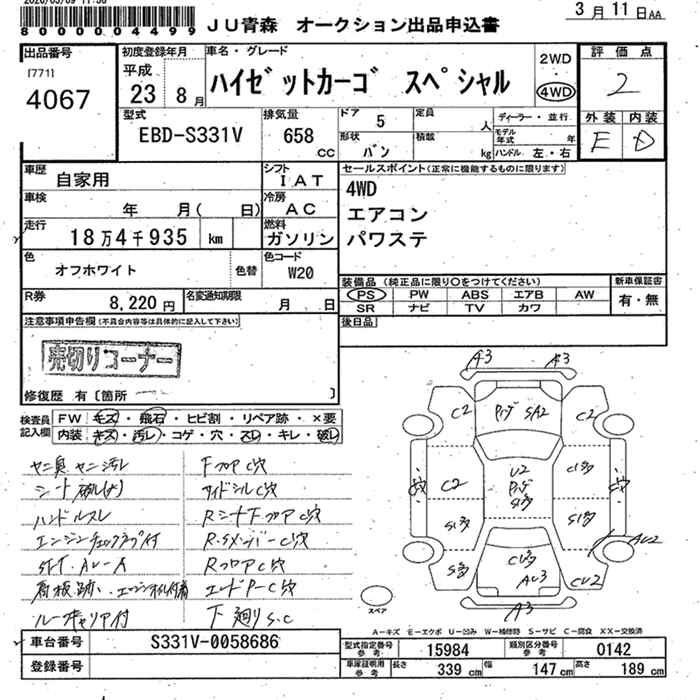 8000000004499
JU青森 オークション出品申込書
3月11日AA
出品番号
[771]
4067
初度登録年月
平成
23 8月
車名・グレード
ハイゼットカーゴ スペシャル
2WD
4WD
評価点
2
外装 内装
E D
型式
EBD-S331V
排気量
658
cc
ドア
5
形状
バン
定員
人
積載
kg
ディーラー・並行
モデル年式
年
ハンドル 左・右
車歴
自家用
車検
年 月( 日)
走行
18万4千935 km
シフト
IAT
冷房
AC
燃料
ガソリン
色
オフホワイト
色替
色コード
W20
R券
8,220円
名変通知期限
月 日
セールスポイント(正常に機能するものに限ります)
4WD
エアコン
パワステ
装備品 (純正品に限り○をつけてください)
PS PW ABS エアB AW
SR ナビ TV カワ
新車保証書
有・無
後日品
注意事項申告欄 (不具合内容等は具体的に記入して下さい)
売切りコーナー
修復歴 有 [箇所 ]
検査員
記入欄
FW キズ・飛石・ヒビ割・リペア跡・×要
内装 キズ・汚レ・コゲ・穴・スレ・キレ・破レ
ヤニ臭 ヤニ汚レ
シート破レ(大)
ハンドルスレ
エンジンチェックランプ付
ルーフキャリア付
FフロアC穴
サイドシルC穴
Rシート下フロアC穴
R.SメンバーC穴
RフロアC穴
エンドP-C穴
下廻りS.C
A3 A3
C2 SA2 C2
U2
C2
AU2
AU3 CU2
A3
スペア
A-キズ E-エクボ U-凹み W-補修跡 S-サビ C-腐食 XX-交換済
車台番号 S331V-0058686
登録番号
型式指定番号 参考 15984 類別区分番号 参考 0142
車庫証明用 参考 長さ 339cm 幅 147cm 高さ 189cm